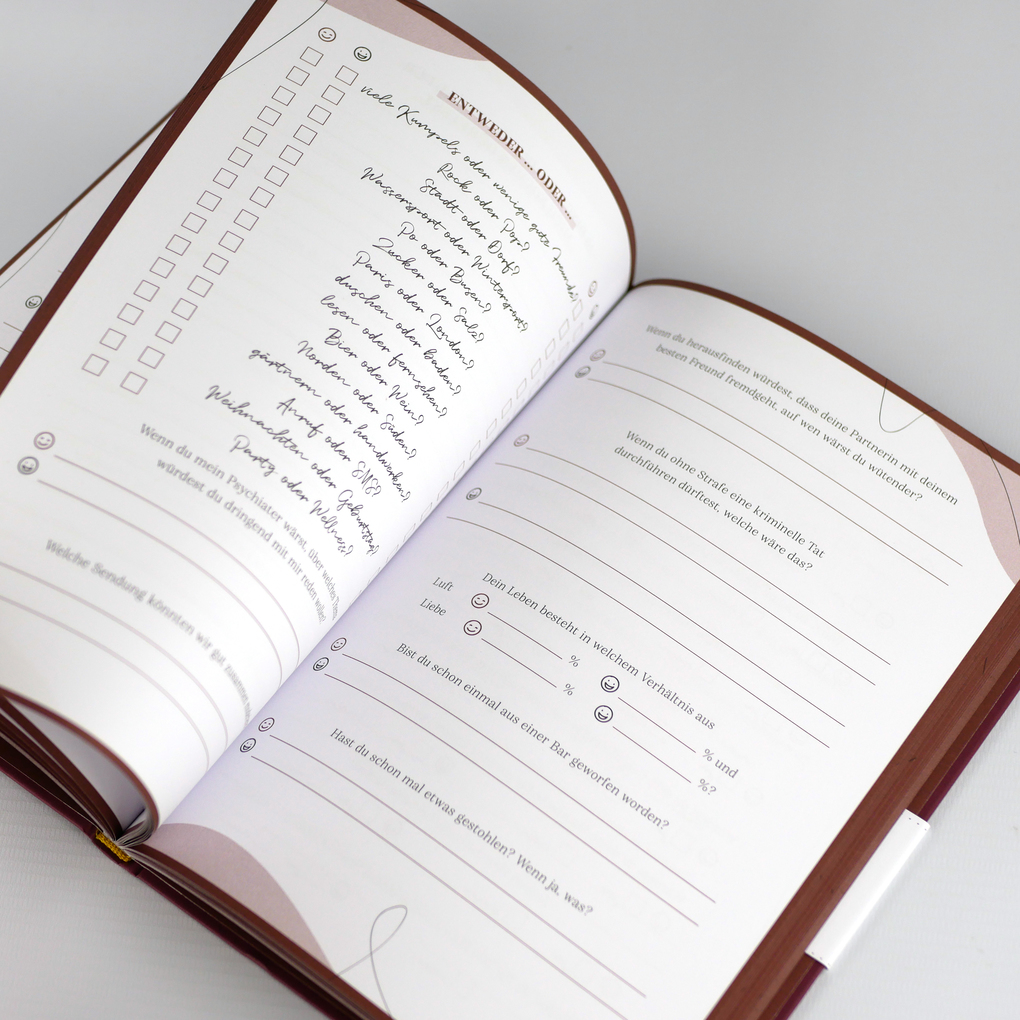 ENTWEDER ... ODER ...
viele Kumpels oder wenige gute Freunde?
Rock oder Pop?
Stadt oder Dorf?
Wassersport oder Wintersport?
Po oder Busen?
Zucker oder Salz?
Paris oder London?
duschen oder baden?
lesen oder fernsehen?
Bier oder Wein?
Norden oder Süden?
gärtnern oder handwerken?
Anruf oder SMS?
Weihnachten oder Geburtstag?
Party oder Wellness?
Wenn du mein Psychiater wärst, über welches Thema
würdest du dringend mit mir reden wollen?
Welche Sendung könnten wir gut zusammen
Wenn du herausfinden würdest, dass deine Partnerin mit deinem
besten Freund fremdgeht, auf wen wärst du wütender?
Wenn du ohne Strafe eine kriminelle Tat
durchführen dürftest, welche wäre das?
Dein Leben besteht in welchem Verhältnis aus
Luft % und
Liebe % %?
%
Bist du schon einmal aus einer Bar geworfen worden?
Hast du schon mal etwas gestohlen? Wenn ja, was?